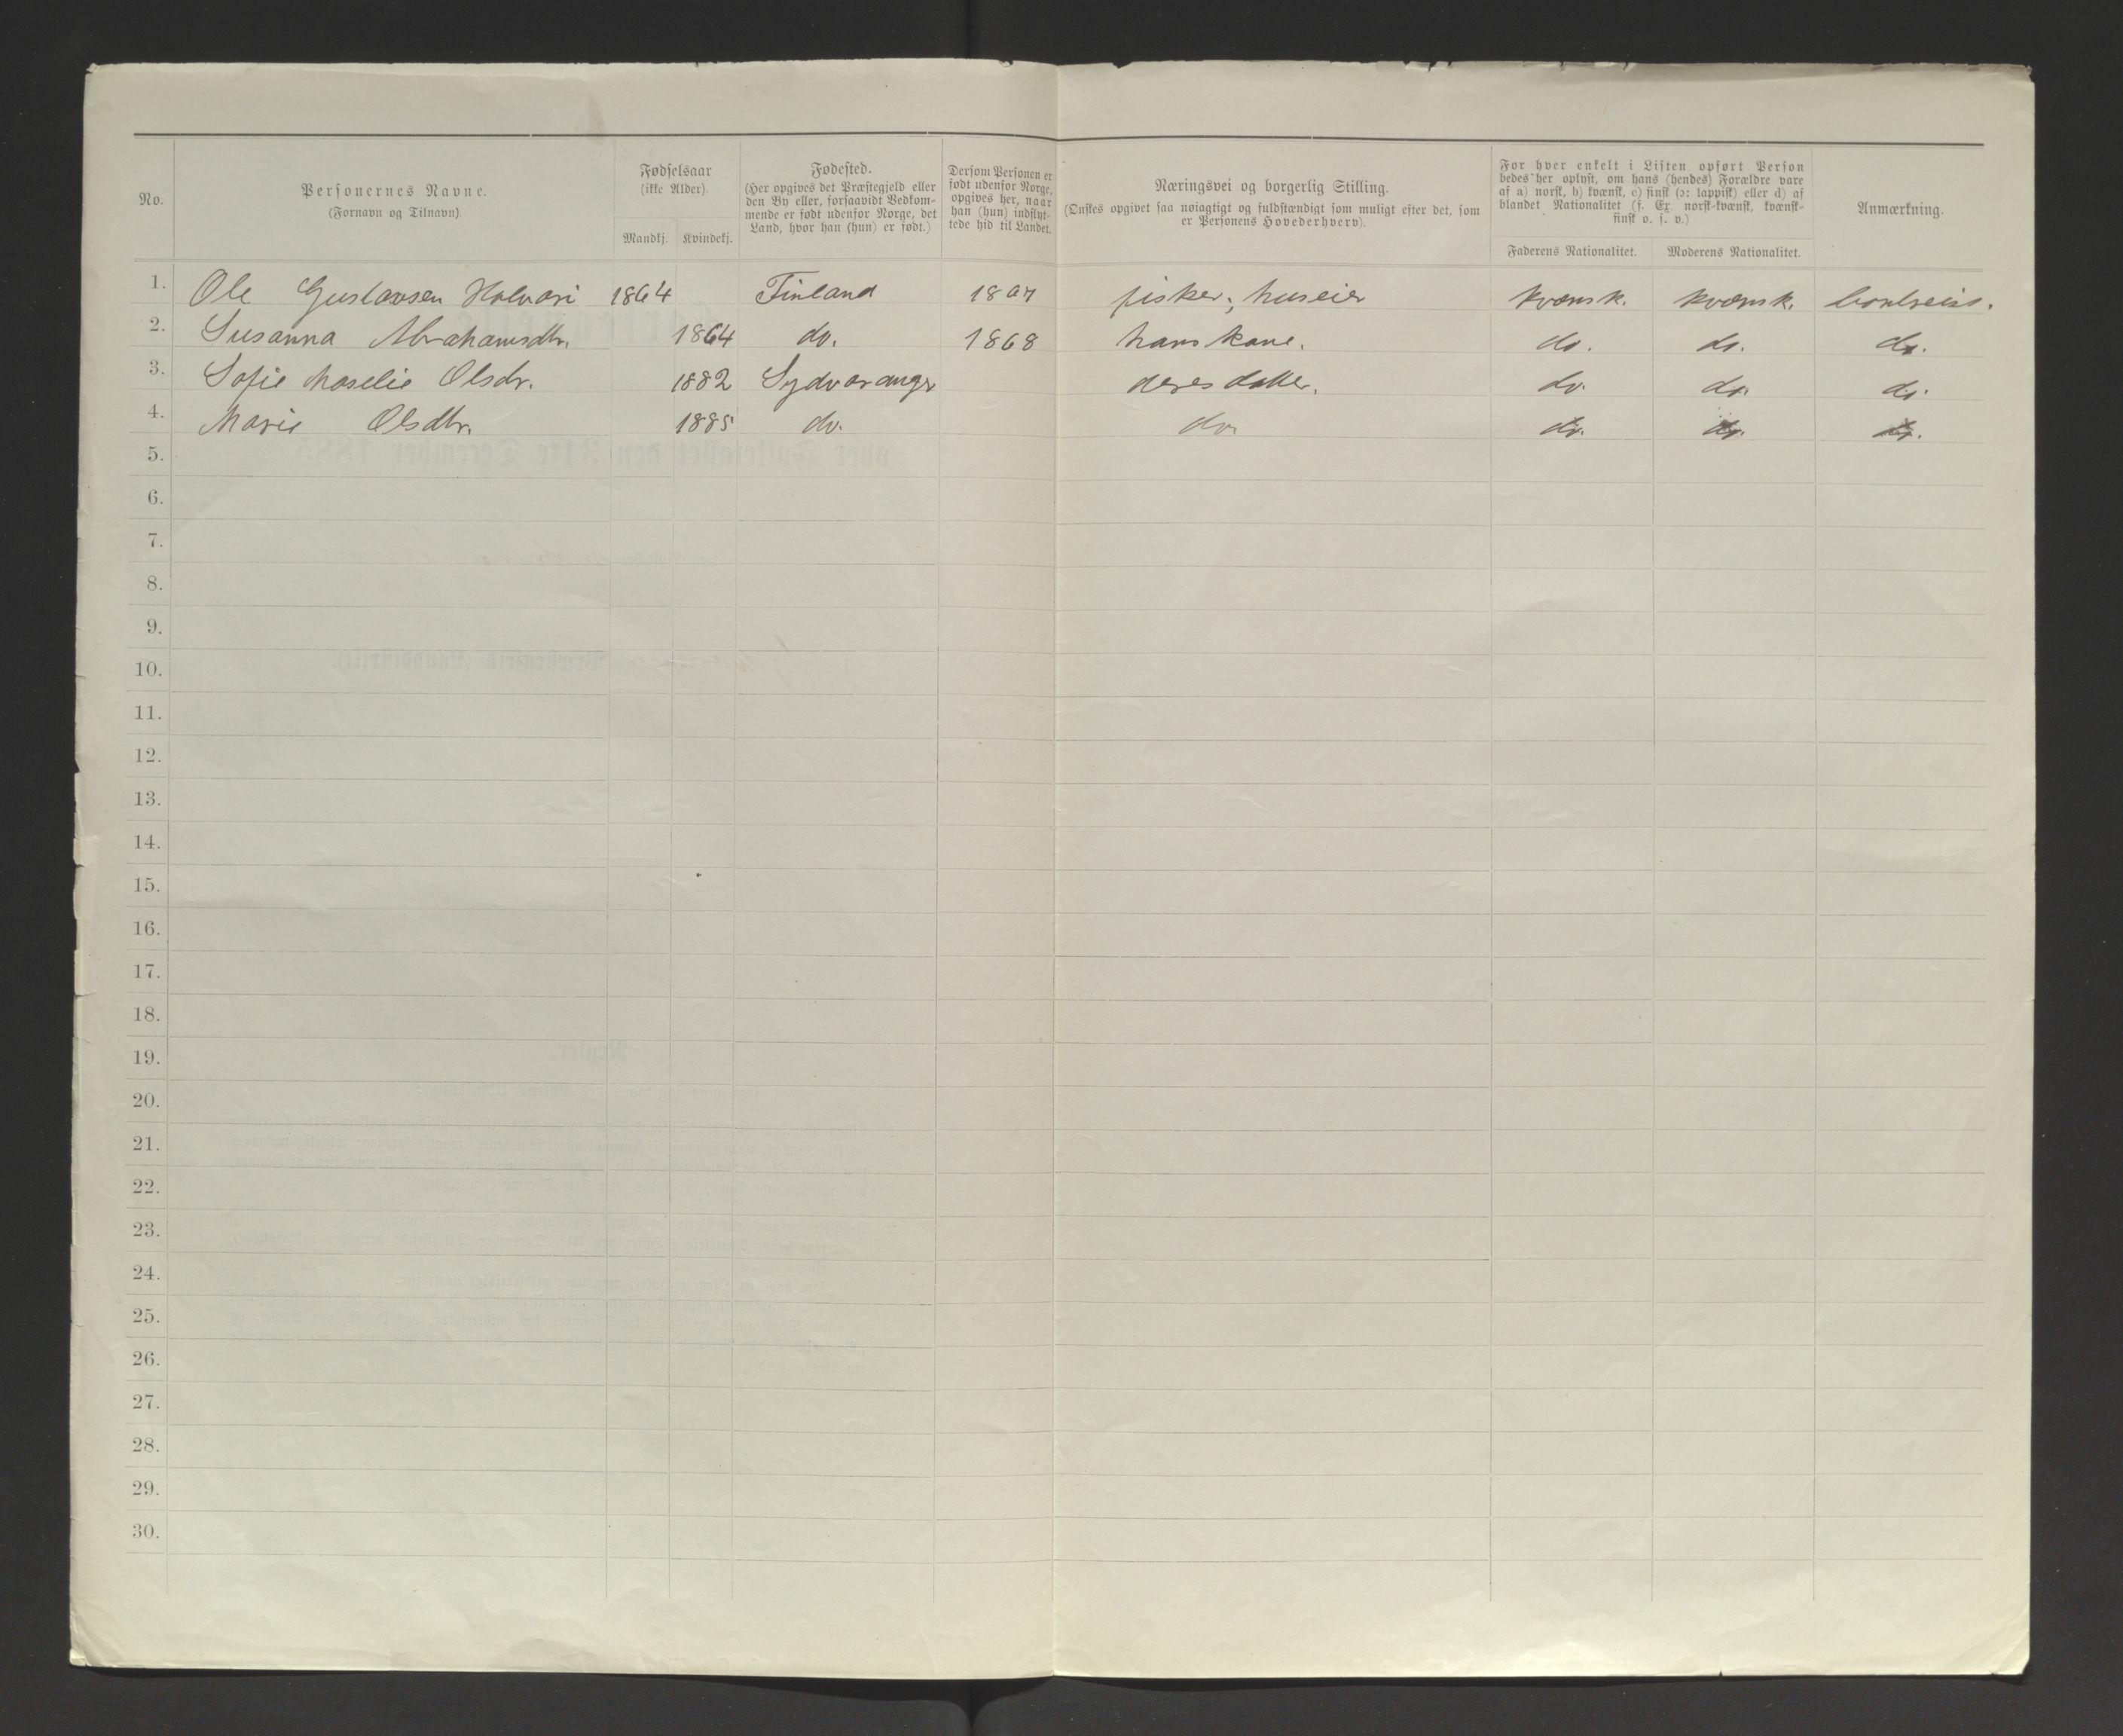 No.
Personernes Navne.
(Fornavn og Tilnavn)
Fødselsaar
(ikke Alder).
Mandkj. Kvindekj.
Fødested.
(Her opgives det Præstegjeld eller
den By eller, forsaavidt Vedkom-
mende er født udenfor Norge, det
Land, hvor han (hun) er født.)
Dersom Personen er
født udenfor Norge,
opgives her, naar
han (hun) indflyt-
tede hid til Landet.
Næringsvei og borgerlig Stilling.
(Ønskes opgivet saa nøiagtigt og fuldstændigt som muligt efter det, som
er Personens Hovederhverv).
For hver enkelt i Listen opført Person
bedes her oplyst, om hans (hendes) Forældre vare
af a) norsk, b) kvænsk, c) finsk (ɔ: lappisk) eller d) af
blandet Nationalitet (f. Ex. norsk-kvænsk, kvænsk-
finsk o. s. v.)
Faderens Nationalitet. Moderens Nationalitet.
Anmærkning.
1. Ole Gustavsen 1864 Finland fisker, huseier kvænsk. kvænsk.
2. Susanna Abrahamsdtr. 1864 do. 1868 hans kone. do. do. do.
3. Sofie Olsdr. 1882 Sydvaranger deres datter. do. do. do.
4. Marie Olsdtr. 1885 do. do. do. do. do.
5.
6.
7.
8.
9.
10.
11.
12.
13.
14.
15.
16.
17.
18.
19.
20.
21.
22.
23.
24.
25.
26.
27.
28.
29.
30.